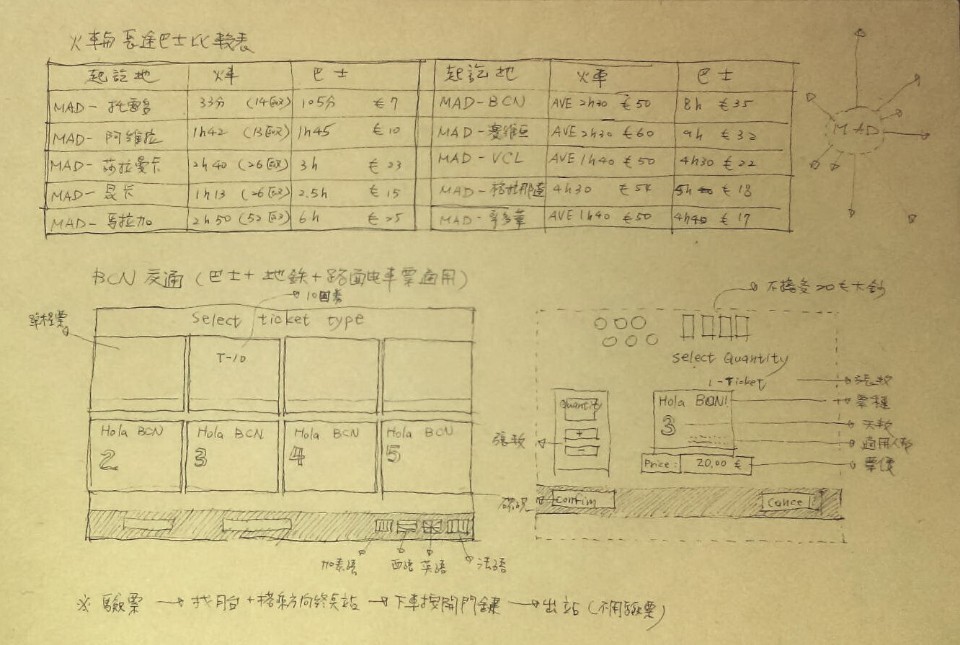 火車與長途巴士比較表
起訖地 火車 巴士
MAD- 托雷多 33分 (14€) 105分 €7
MAD- 阿維拉 1h42 (13€) 1h45 €10
MAD- 薩拉曼卡 2h40 (26€) 3h €23
MAD- 昆卡 1h13 (26€) 2.5h €15
MAD- 馬拉加 2h50 (52€) 6h €25
起訖地 火車 巴士
MAD-BCN AVE 2h30 €50 8h €35
MAD-塞維亞 AVE 2h30 €60 9h €32
MAD-VCL AVE 1h40 €50 4h30 €22
MAD-格拉那達 4h30 €54 5h €18
MAD-哥多華 AVE 1h40 €50 4h40 €17
MAD
BCN 交通 (巴士+地鉄+路面电車票適用)
單程票
10回票
Select ticket type
T-10
Hola BCN 2
Hola BCN 3
Hola BCN 4
Hola BCN 5
西語 英語 法語
不接受20€大鈔
Select Quantity
1-Ticket
張數
Quantity
+
-
張數
Hola BCN!
3
票種
天数
適用人數
Price: 20.00 €
票價
確認
Confirm
Cancel
※ 驗票 → 找月台+搭乘方向終点站 → 下車按開門鍵 → 出站 (不用驗票)